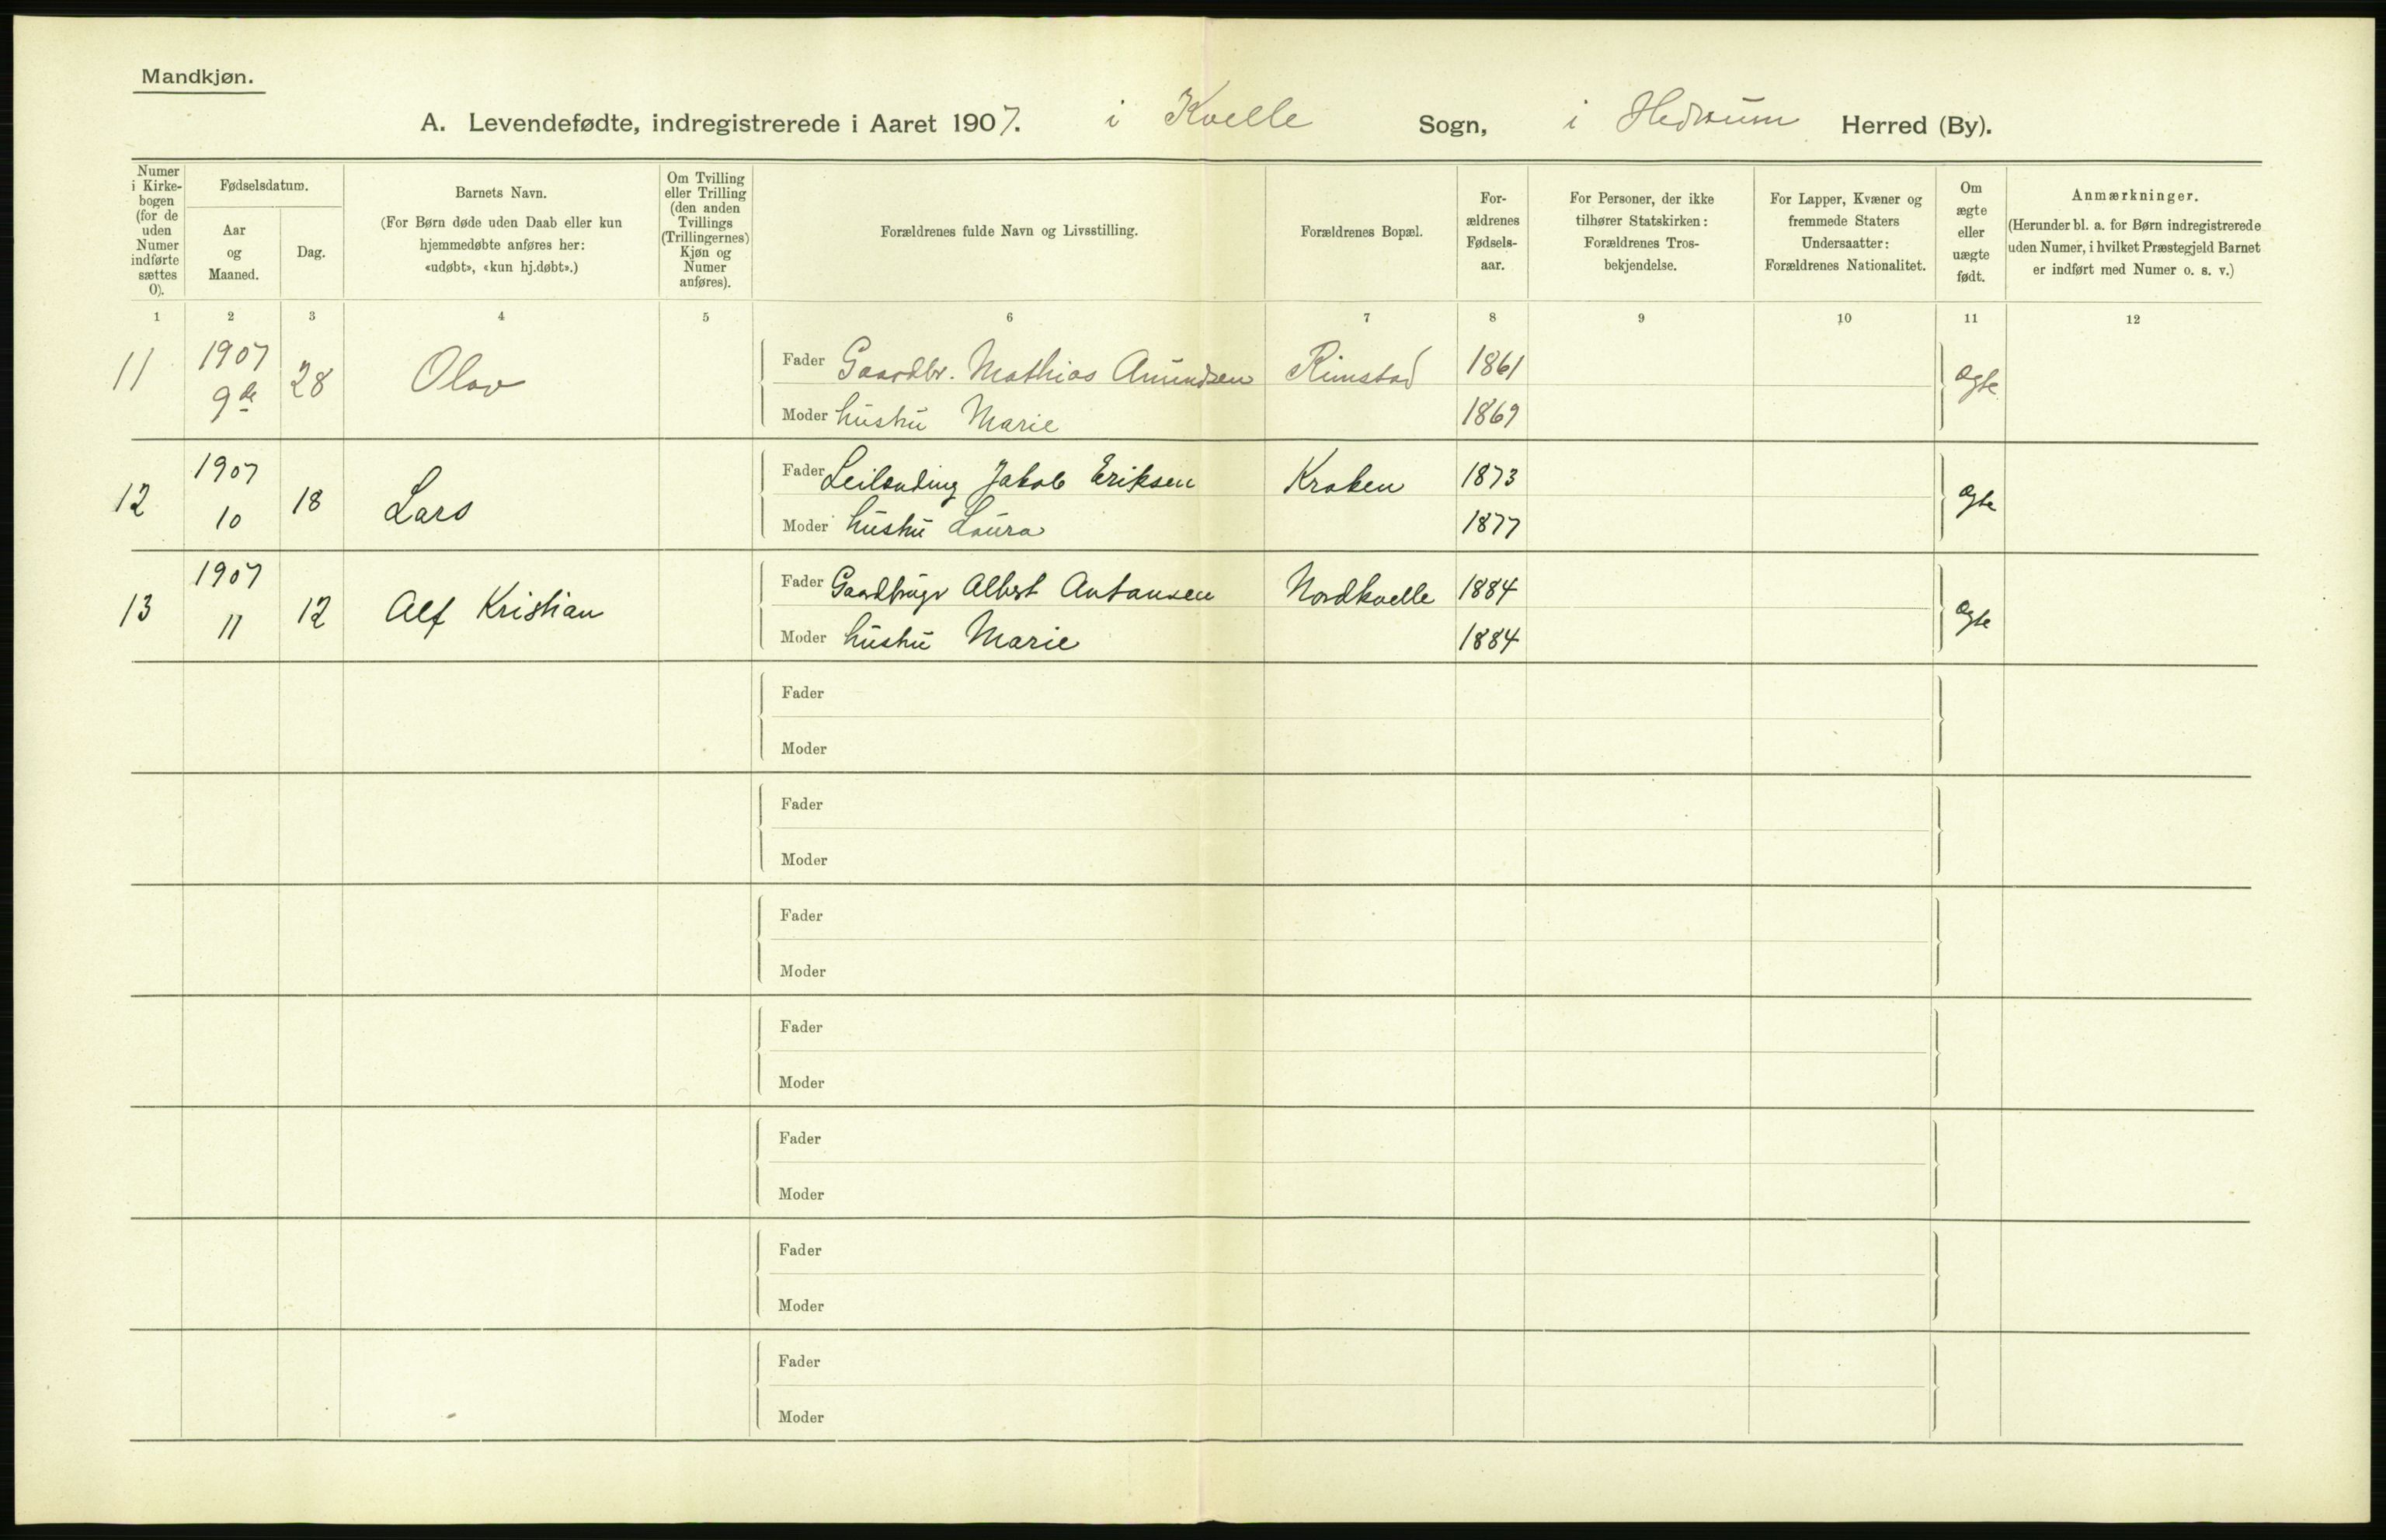 Mandkjøn.
A. Levendefødte, indregistrerede i Aaret 1907. i Kvelle Sogn, i Hedrum Herred (By).
Numer i Kirkebogen (for de uden Numer indførte sættes 0).
Fødselsdatum.
Aar og Maaned.
Dag.
Barnets Navn.
(For Børn døde uden Daab eller kun
hjemmedøbte anføres her:
«udøbt», «kun hj.døbt».)
Om Tvilling
eller Trilling
(den anden
Tvillings
(Trillingernes)
Kjøn og
Numer
anføres).
Forældrenes fulde Navn og Livsstilling.
Forældrenes Bopæl.
For-
ældrenes
Fødsels-
aar.
For Personer, der ikke
tilhører Statskirken:
Forældrenes Tros-
bekjendelse.
For Lapper, Kvæner og
fremmede Staters
Undersaatter:
Forældrenes Nationalitet.
Om
ægte
eller
uægte
født.
Anmærkninger.
(Herunder bl. a. for Børn indregistrerede
uden Numer, i hvilket Præstegjeld Barnet
er indført med Numer o. s. v.)
1 2 3 4 5 6 7 8 9 10 11 12
11 1907 9de 28 Olav Fader Gaardbr. Mathias Amundsen Rimstad 1861 Ægte
Moder hustru Marie 1869
12 1907 10 18 Lars Fader Leilending Jakob Eriksen Kraken 1873 Ægte
Moder hustru Laura 1877
13 1907 11 12 Alf Kristian Fader Gaardbruger Albert Antonsen Nordkvelle 1884 Ægte
Moder hustru Marie 1884
Fader
Moder
Fader
Moder
Fader
Moder
Fader
Moder
Fader
Moder
Fader
Moder
Fader
Moder